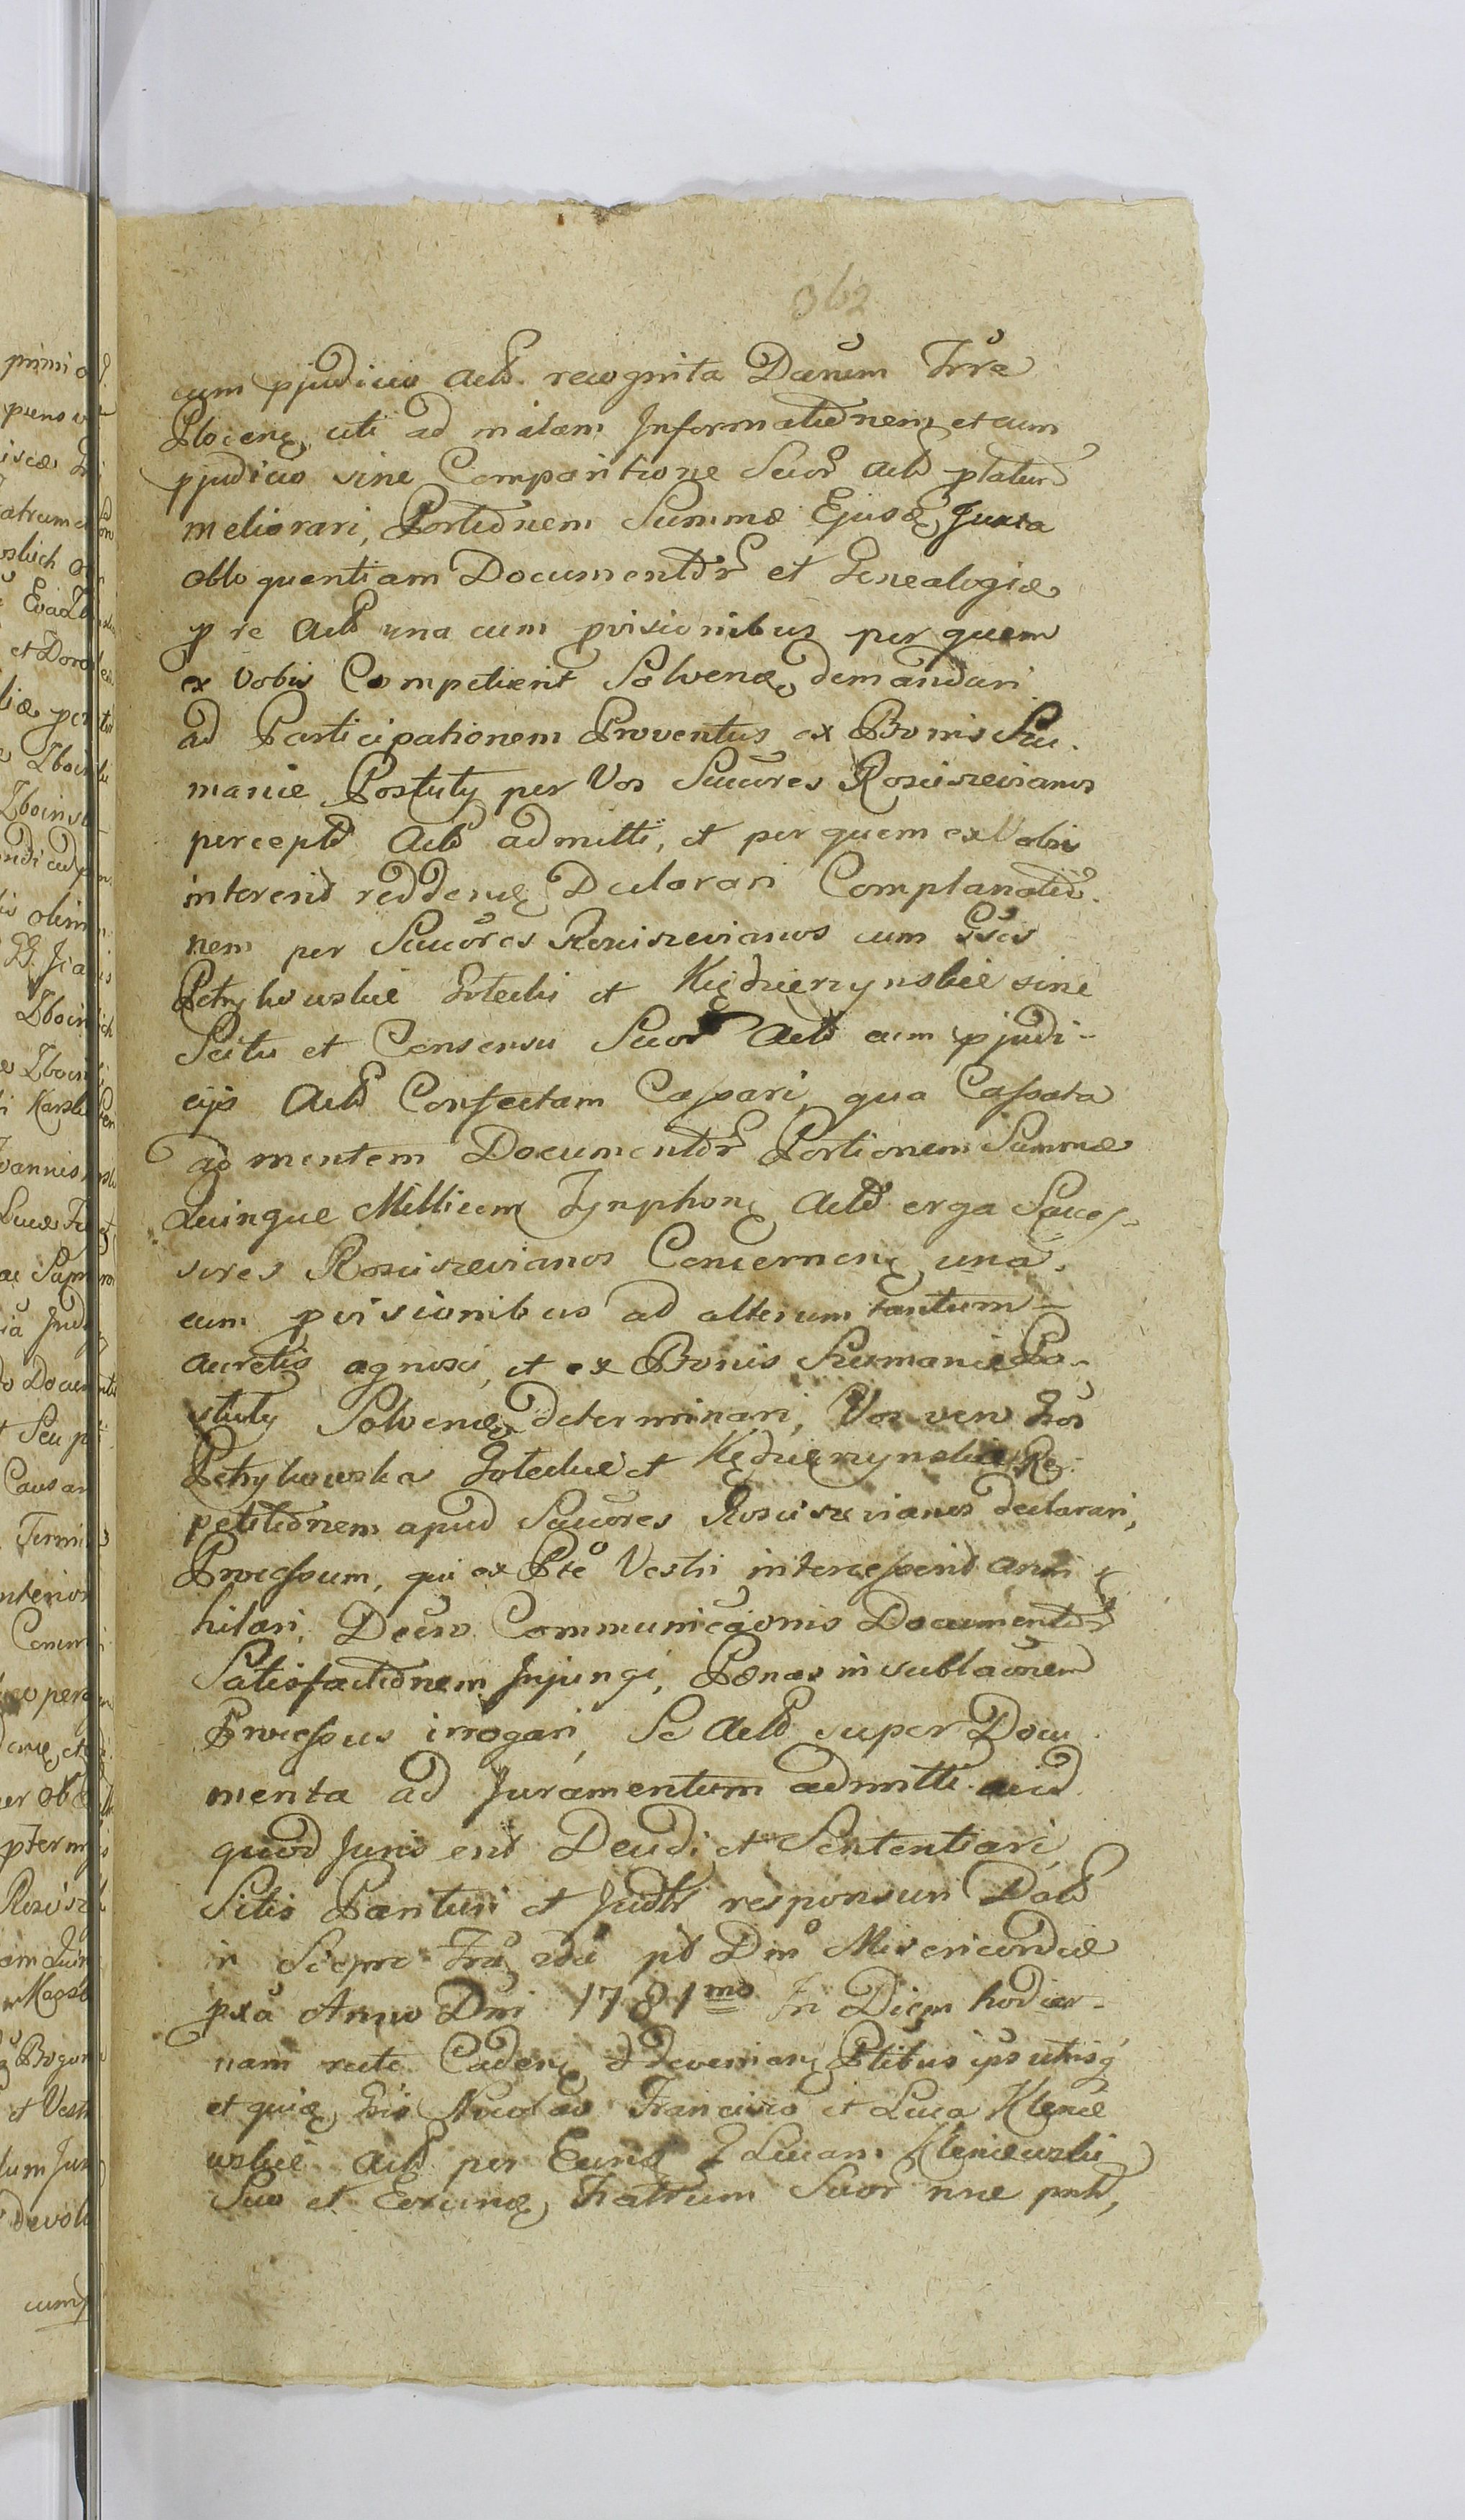 362
cum pjudicio Actō recognita Decrum Trrē
Plocen, uti ad malam Informationem et cum
pjudicio sine Comparitione Suor Actō platum
meliorari, Portionem Summæ Ejusd, Juxta
obloquentiam Documentor et Genealogiæ
p re Actō una cum pvisionibus per quem
ex Vobis Competierit Solvend, demandari
ad Participationem Proventus ex Bonis Szu-
manie Postuty per Vos Succōres Rosciszevianos
percepto Actō admitti, et per quem ex Vobis
intererit reddend Declarari Complanatio-
nem per Succōres Rosciszevianos cum Gsis
Petrykowskie Goteckis et Kiędzierzynskie sine
Scitu et Consensu Suor Actō cum pjudi-
cijs Actō Confectam Cassari, qua Cassata
ad mentem Documentor Portionem Summæ
Quinque Millium Tynphon Actō erga Succes-
sores Rosciszevianos Concernen una
cum pvisionibus ad alterum tantum
accretis agnosci, et ex Bonis Szumanie Po-
stuty Solvend, determinari, Vos vero Gsos
Petrykowska Goteckie et Kędzierzynskie Re-
petitionem apud Succōres Rosciszevianos declarari,
Processum, qui ex Pte Vestri intercesserit anni-
hilari, Decro Communicaonis Documentor
Satisfactionem Injungi, Pœnas in sublaonem
Processus irrogari, Se Actō super Docu-
menta ad Juramentum admitti aliud
quod Juris erit Decidi et Sententiari,
Sitis Parituri et Judtr responsuri Dat
in Sierpc Fria 2da pt Dmō Misericordiæ
pxa Anno Dni 1781mo In Diem hodier-
nam recte Caden et devenien Ptibus ips utrisq
et quia Gsis Nicolao Francisco et Luca Klenie
wskie Actō per Eund G Lucam Kleniewski
Suo et Eorund, Fratrum Suor nne pnte,